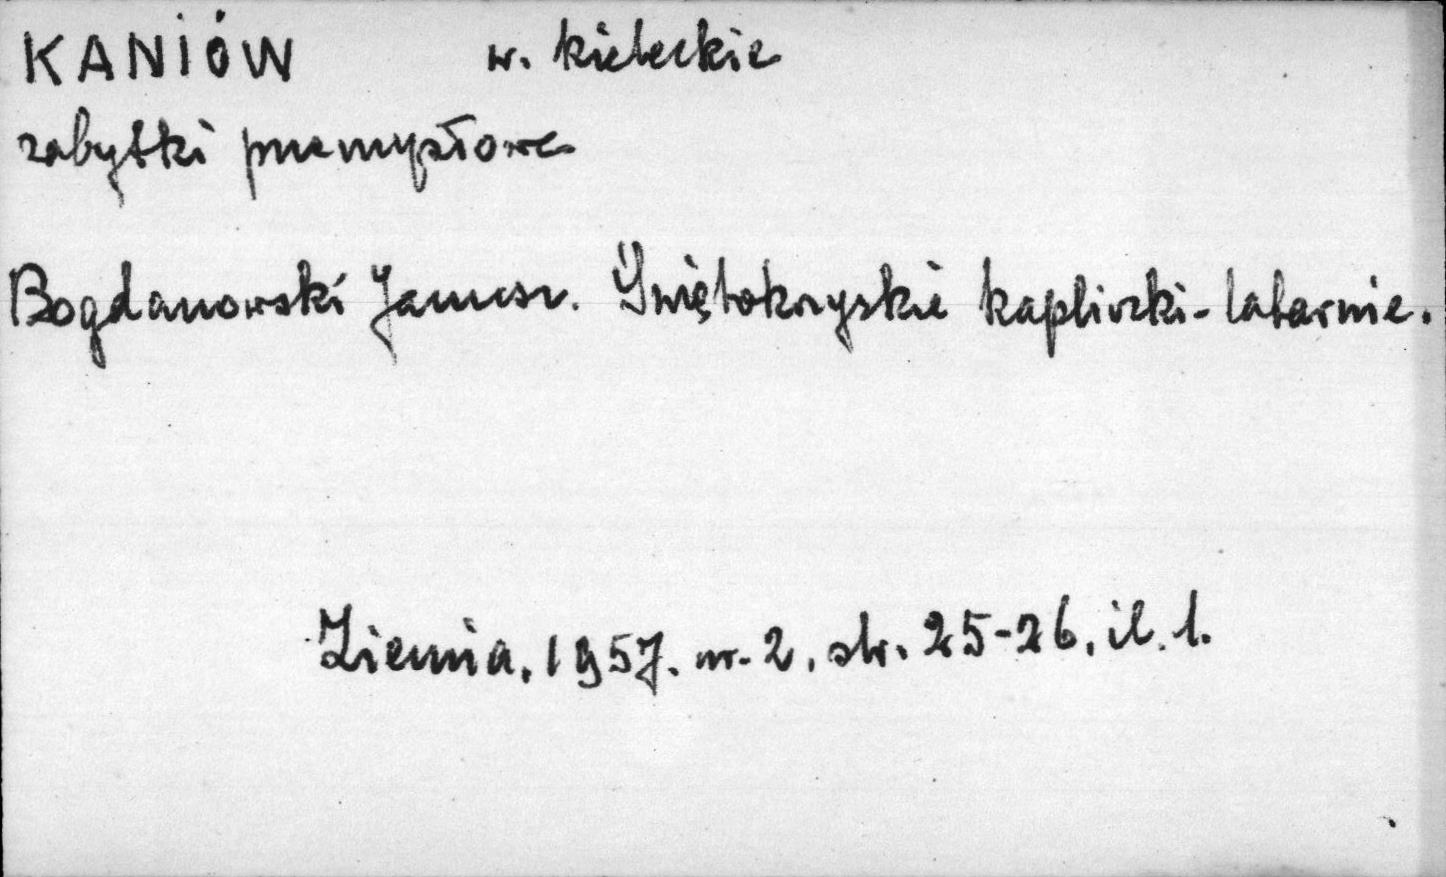 KANIÓW w. kieleckie
zabytki przemysłowe
Bogdanowski Janusz. Świętokrzyskie kapliczki-latarnie.
Ziemia, 1957. nr. 2, str. 25-26, il. 1.